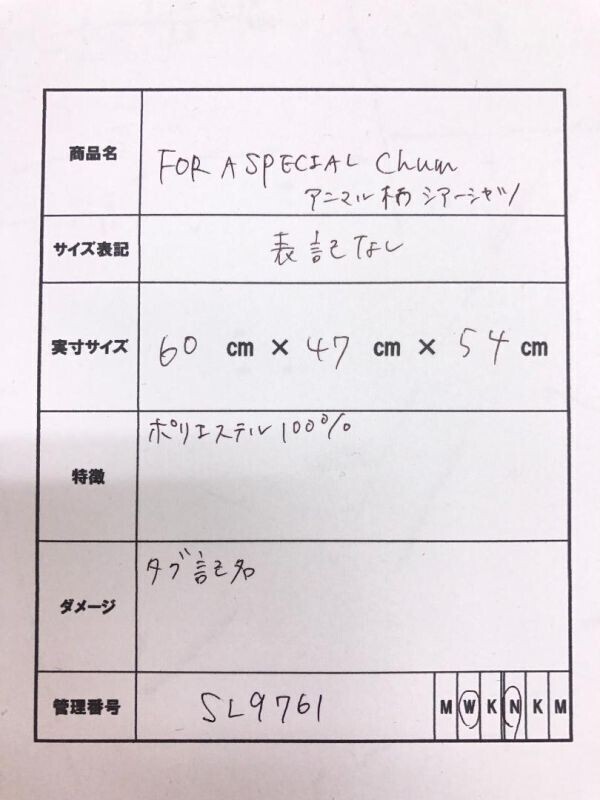 商品名
FOR A SPECIAL Chum
アニマル柄 シアーシャツ
サイズ表記
表記なし
実寸サイズ
60 cm × 47 cm × 54 cm
特徴
ポリエステル100%
ダメージ
タブ記名
管理番号
SL9761
M W K N K M